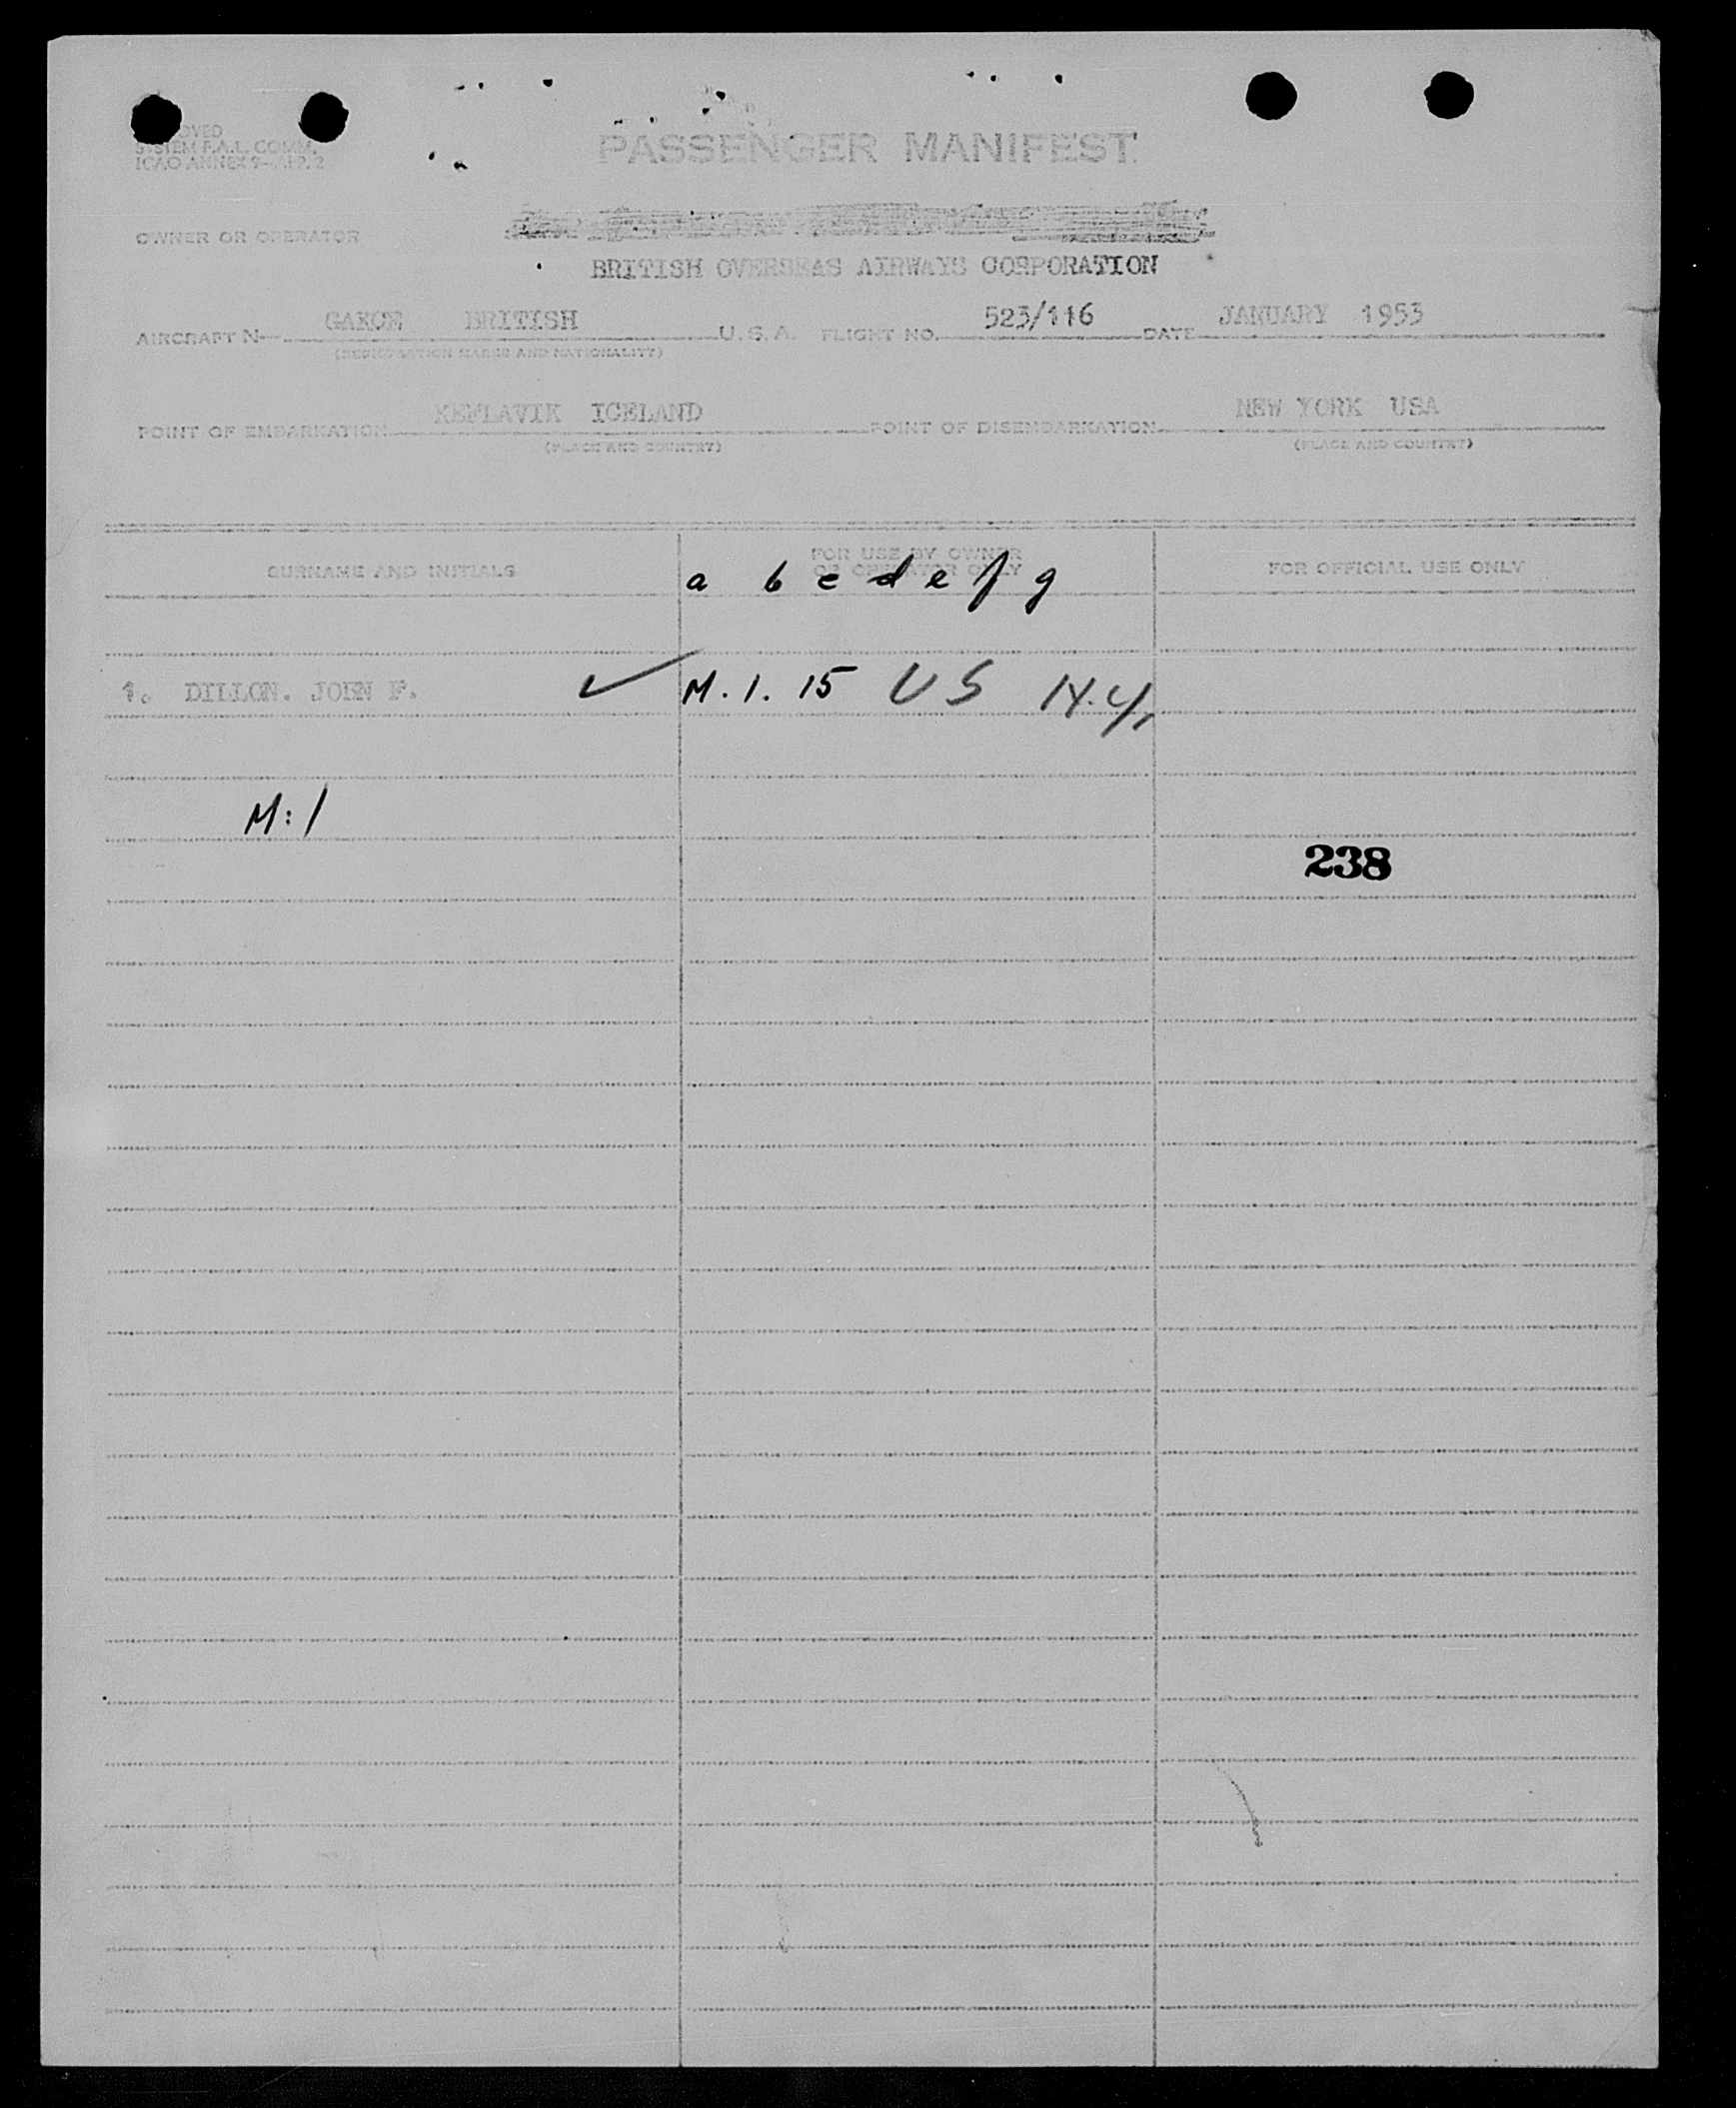 PASSENGER MANIFEST
SYSTEM F.A.L. COMM.
ICAO ANNEX 9
OWNER OR OPERATOR
BRITISH OVERSEAS AIRWAYS CORPORATION
AIRCRAFT BRITISH U.S.A. FLIGHT NO. 523/116 DATE JANUARY 1953
(REGISTRATION MARKS AND NATIONALITY)
POINT OF EMBARKATION KEFLAVIK ICELAND POINT OF DISEMBARKATION NEW YORK USA
(PLACE AND COUNTRY) (PLACE AND COUNTRY)
SURNAME AND INITIALS FOR USE BY OWNER OR OPERATOR ONLY FOR OFFICIAL USE ONLY
a b c d e f g
1. DILLON. JOHN F. M. 1. 15 US N.Y.
M: 1
238